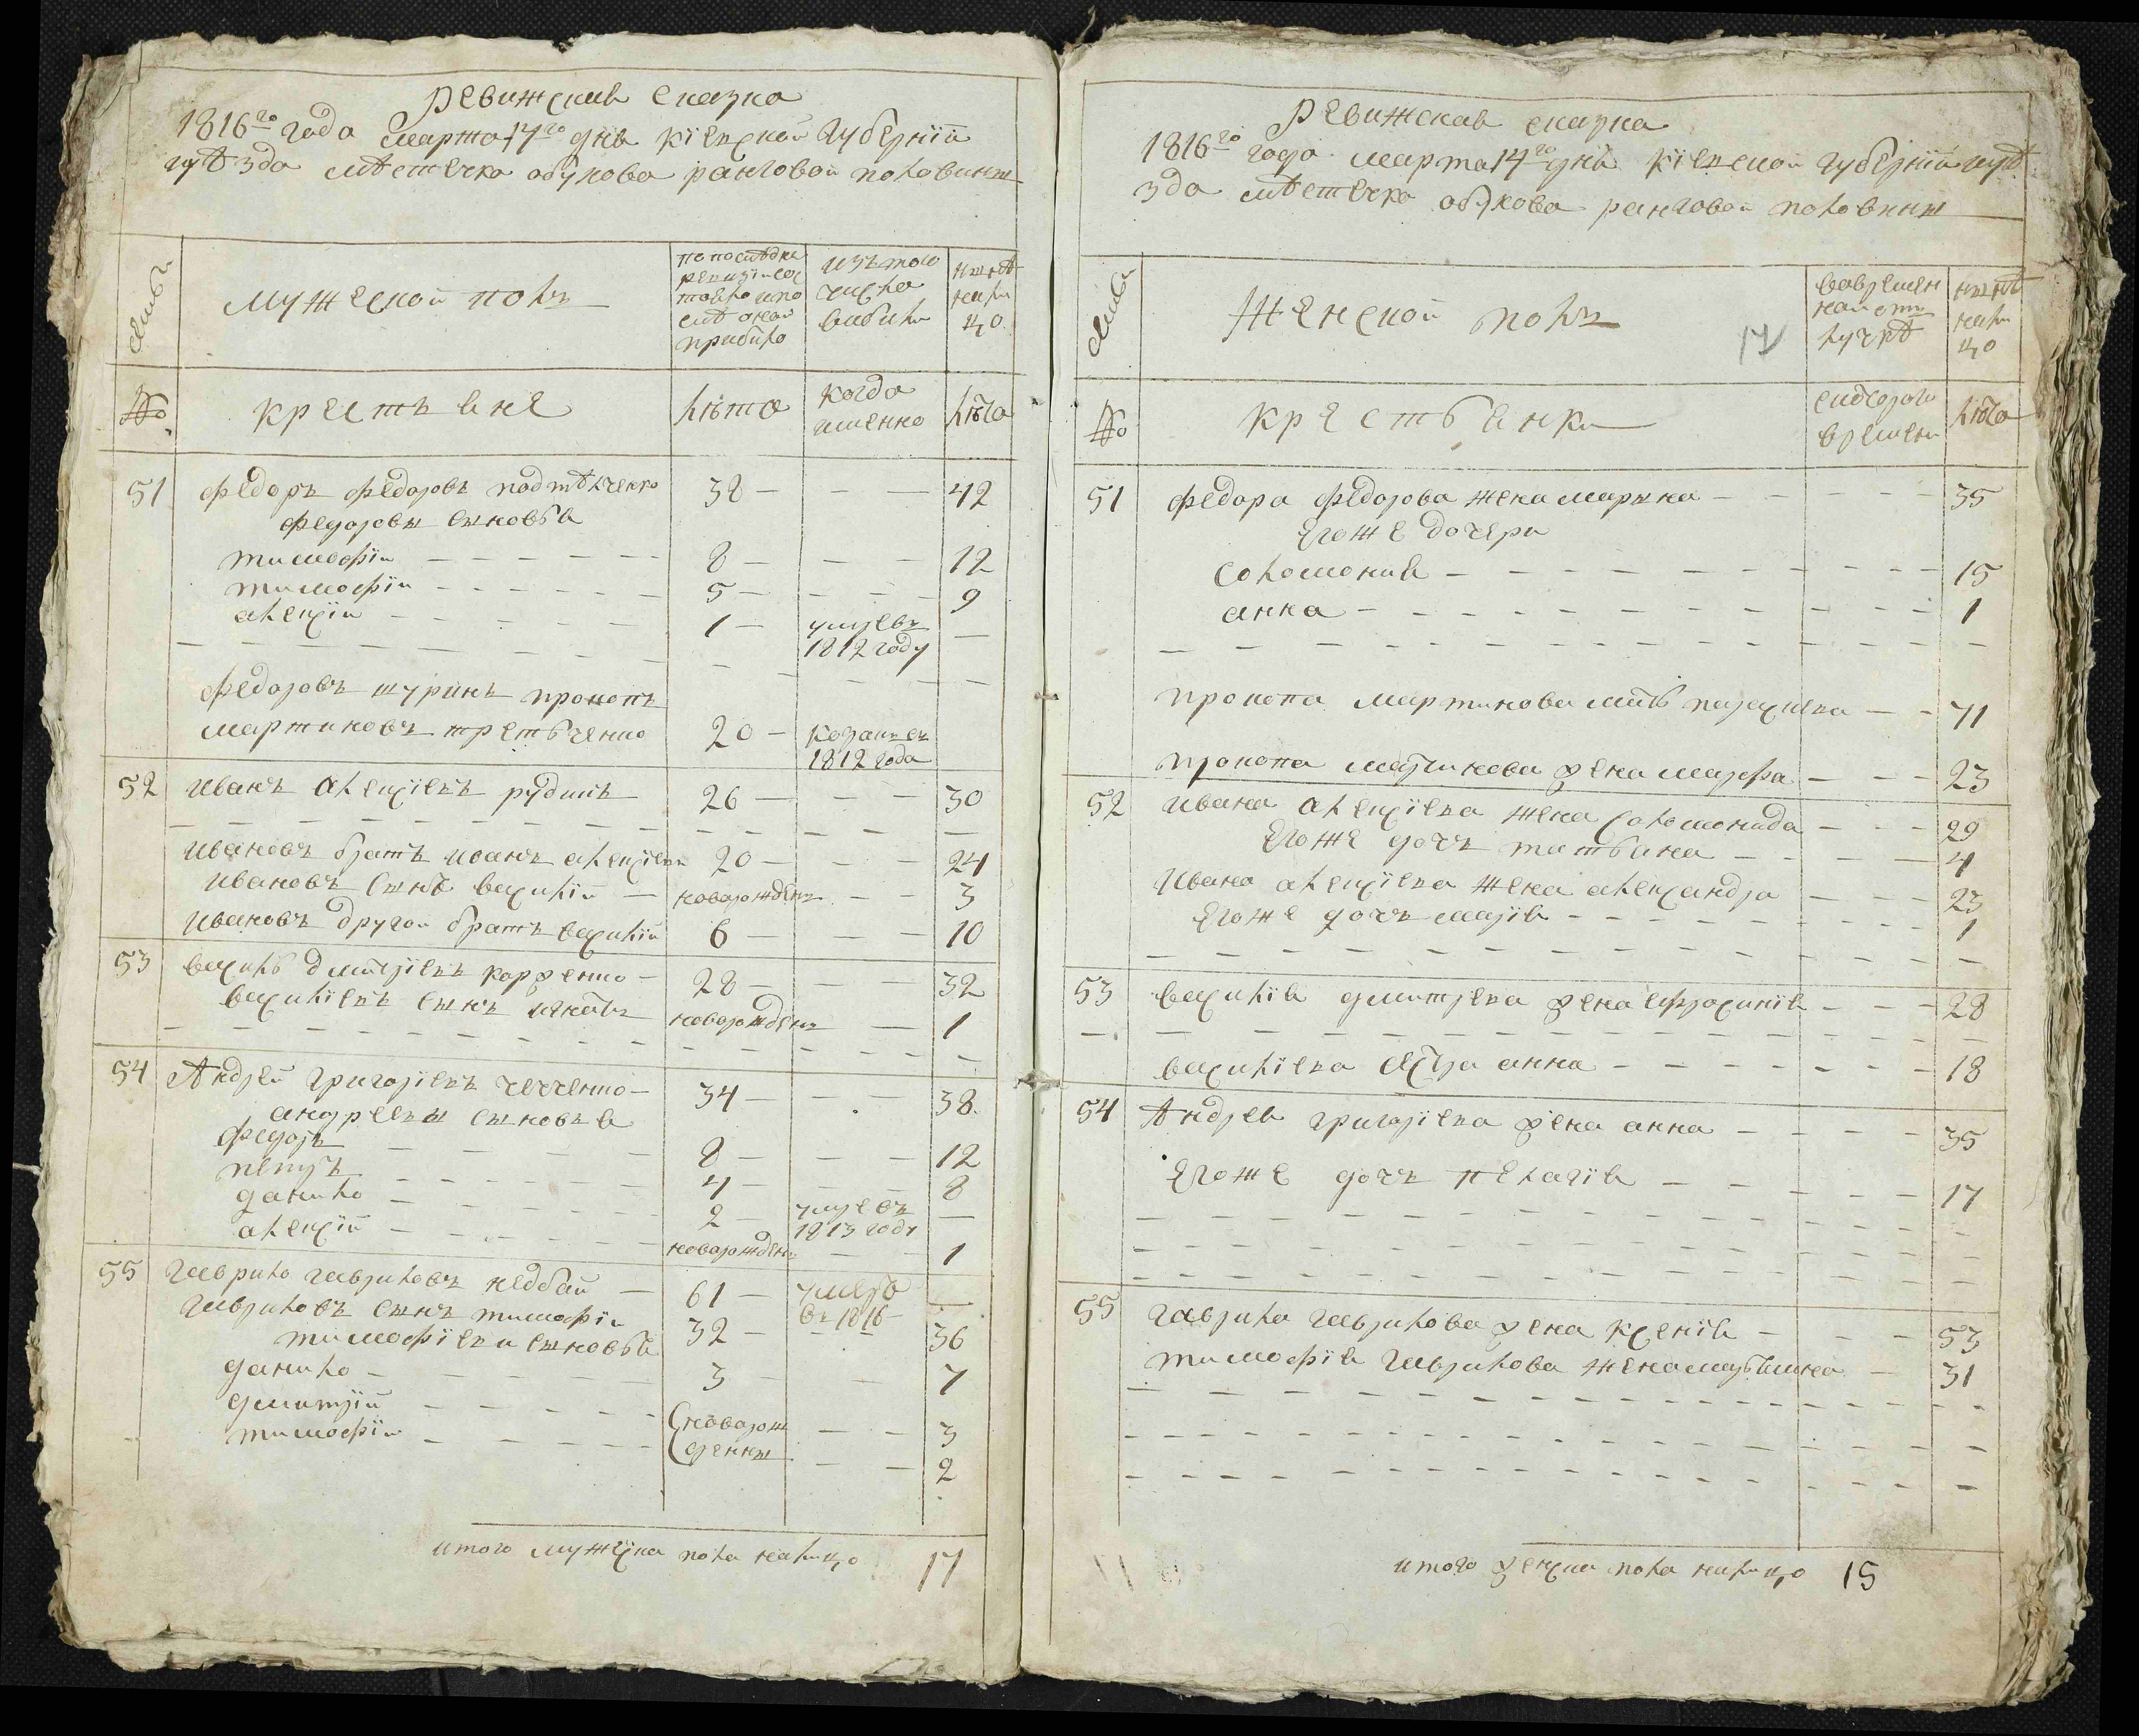 Ревижская сказка
1816го года марта 14го дня кіевской губерніи
уѣзда мѣстечка обухова ранговой половины
семьи
мужеской полъ
по последней
ревизіи сос
тояло и по
слѣ оной
прибыло
изъ того
числа
выбыло
нынѣ
нали
цо
№
крестьяне
лѣта
когда
именно
лѣта
51 федоръ федоровъ подтѣлченко 38 — — — 42
федоровы сыновья
тимофій — 8 — — — 12
тимофій — 5 — — — 9
алексій — 1 — умре въ —
1812 году
федоровъ шуринъ прокопъ
мартиновъ третьченко 20 — козакъ съ
1812 года
52 иванъ алексіевъ рудикъ 26 — — — 30
ивановъ братъ иванъ алексіевъ 20 — — — 24
ивановъ сынъ василій — новорожденъ — — 3
ивановъ другои братъ василій 6 — — — 10
53 василь дмитріевъ корженко — 28 — — — 32
василіевъ сынъ игнатъ новорожденъ — 1
54 Андрей григоріевъ чечченко — 34 — — — 38
андреевы сыновья
федоръ — 8 — — — 12
петръ — 4 — — — 8
данило — 2 — умре въ —
1813 году
алексій — новорожденъ — — 1
55 гаврило гавриловъ недбай — 61 — умеръ —
въ 1816
гавриловъ сынъ тимофій 32 — 36
тимофіеви сыновья
данило — 3 — — 7
дмитрій — новорож — — 3
тимофій — денны — — 2
итого мужеска пола налицо 17
Ревижская сказка
1816го года марта 14го дня кіевской губерніи уѣ
зда мѣстечка обухова ранговой половины
семьи
Женской полъ
17
во времен
ной отъ
лучкѣ
нынѣ
нали
цо
№
крестьянки
съ которого
времени
лѣта
51 федора федорова жена марина — 35
Егоже дочери
соломонія — 15
анна — 1
прокопа мартинова мать параскева — 71
прокопа мартинова жена марфа — 23
52 ивана алексіева жена соломонида — 29
Егоже дочь татьяна — 4
ивана алексіева жена александра — 23
Егоже дочь марія — 1
53 василія дмитрева жена ефросинія — 28
василіева сестра анна — 18
54 Андрея григоріева жена анна — 35
Егоже дочь пелагія — 17
55 гаврила гаврилова жена ксенія — 53
тимофія гаврилова жена марьяна — 31
итого женска пола налицо 15